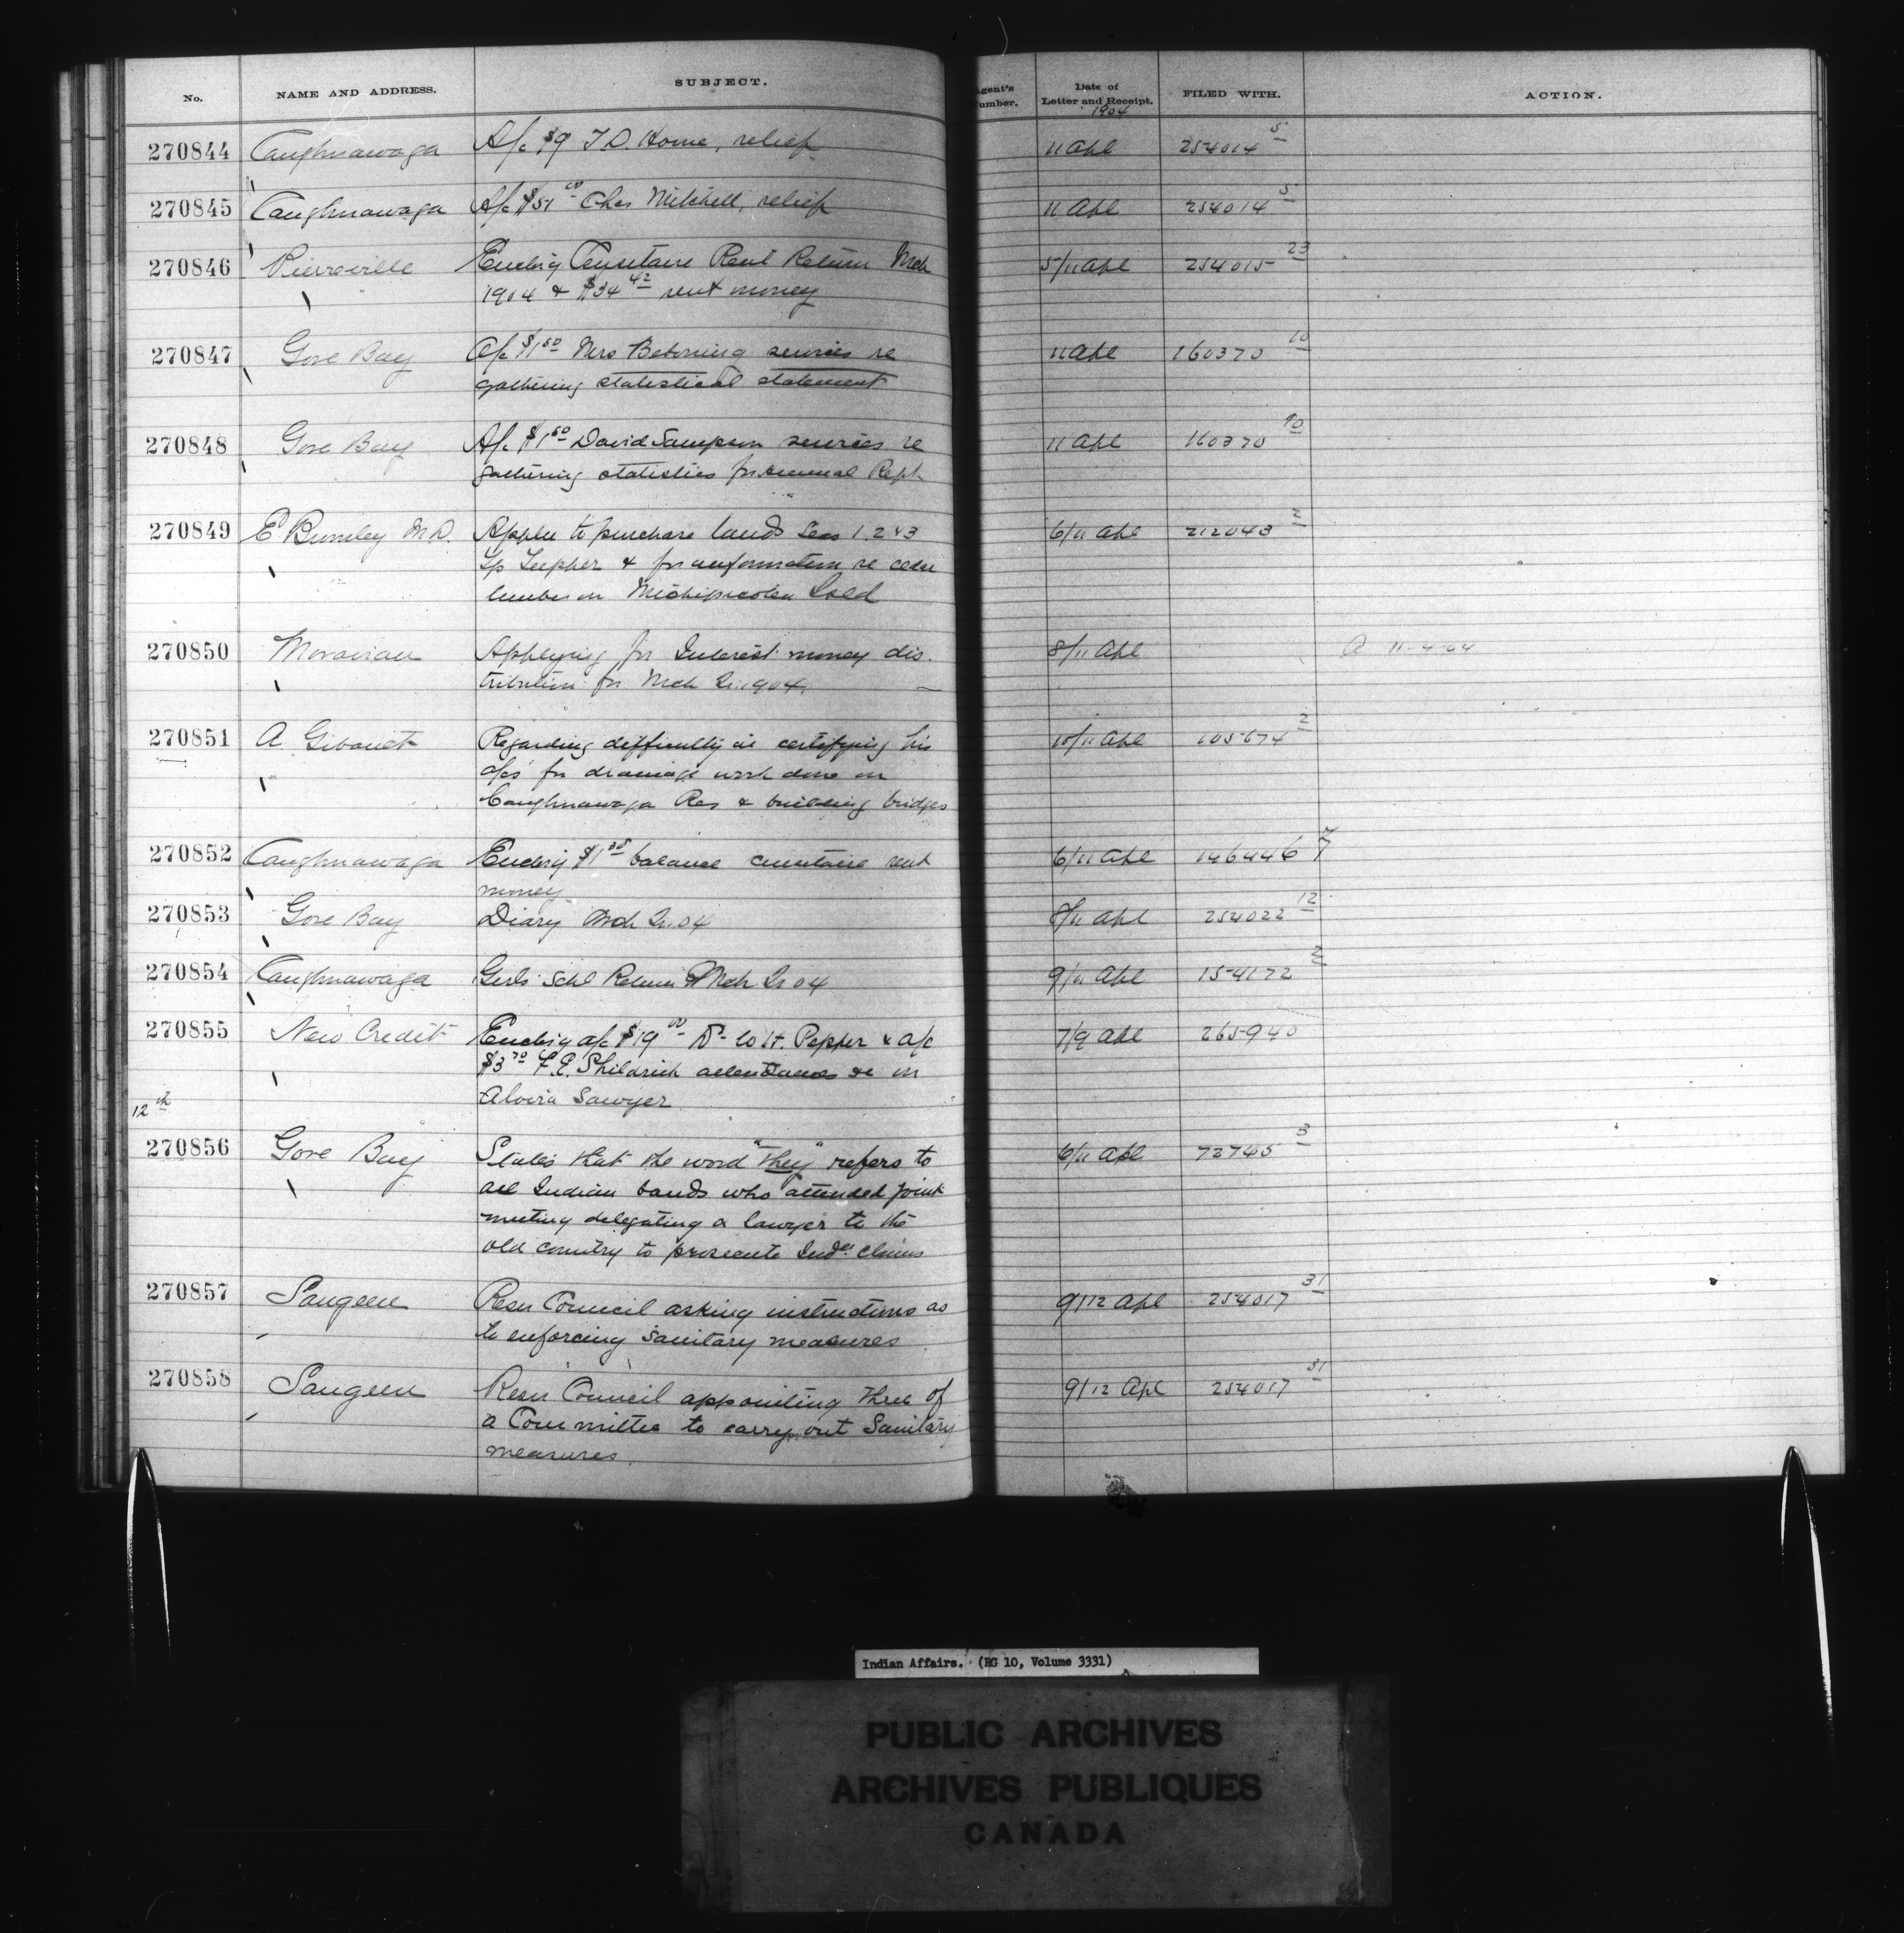 No. NAME AND ADDRESS. SUBJECT. Agent's Number. Date of Letter and Receipt. FILED WITH. ACTION.
1904
270844 Caughnawaga A/c $9 T D. Home, relief 11 Apl 254014 5
270845 Caughnawaga A/c $51 00 Chas Mitchell, relief 11 Apl 254014 5
270846 Pierreville Enclsg Censitaire Rent Return Mch 5/11 Apl 254015 23
1904 & $34 42 rent money
270847 Gore Bay A/c $1 50 Mrs services re 11 Apl 160370 10
gathering statistical statement
270848 Gore Bay A/c $1 50 David Sampson services re 11 Apl 160370 10
gathering statistics for annual Rept
270849 E Bumley M.D. Appln to purchase lands Secs 1. 2 & 3 6/11 Apl 212043 2
Tp Tupper & for information re
timber on Michipicoten Isld
270850 Moravian Applying for Interest money dis- 8/11 Apl A 11-4-04
tribution for Mch Qr 1904.
270851 A Gibault Regarding difficulty in certifying his 10/11 Apl 105674 2
a/cs for drainage work done on
Caughnawaga Res & building bridges
270852 Caughnawaga Enclsg $1 balance censitaire rent 6/11 Apl 146446
money
270853 Gore Bay Diary Mch Qr 04 8/11 Apl 254022 12
270854 Caughnawaga Girls Schl Return Mch Qr 04 9/11 Apl 154172 2
270855 New Credit Enclsg a/c $19 00 Dr Pepper & a/c 7/9 Apl 265940
$3 70 F. E. Shildrick attendances &c on
Alvira Sawyer
12 th
270856 Gore Bay States that the word "they" refers to 6/11 Apl 72745 3
all Indian bands who attended joint
meeting delegating a lawyer to the
old country to prosecute Inds claims
270857 Saugeen Resn Council asking instructions as 9/12 Apl 254017 31
to enforcing sanitary measures
270858 Saugeen Resn Council appointing three of 9/12 Apl 254017 31
a Committee to carry out Sanitary
measures.
Indian Affairs. (RG 10, Volume 3331)
PUBLIC ARCHIVES
ARCHIVES PUBLIQUES
CANADA